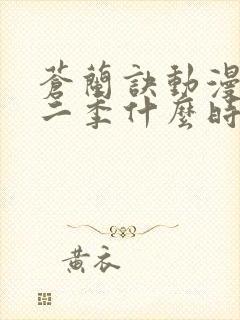 蒼蘭訣動漫
二季什麼時
黃衣